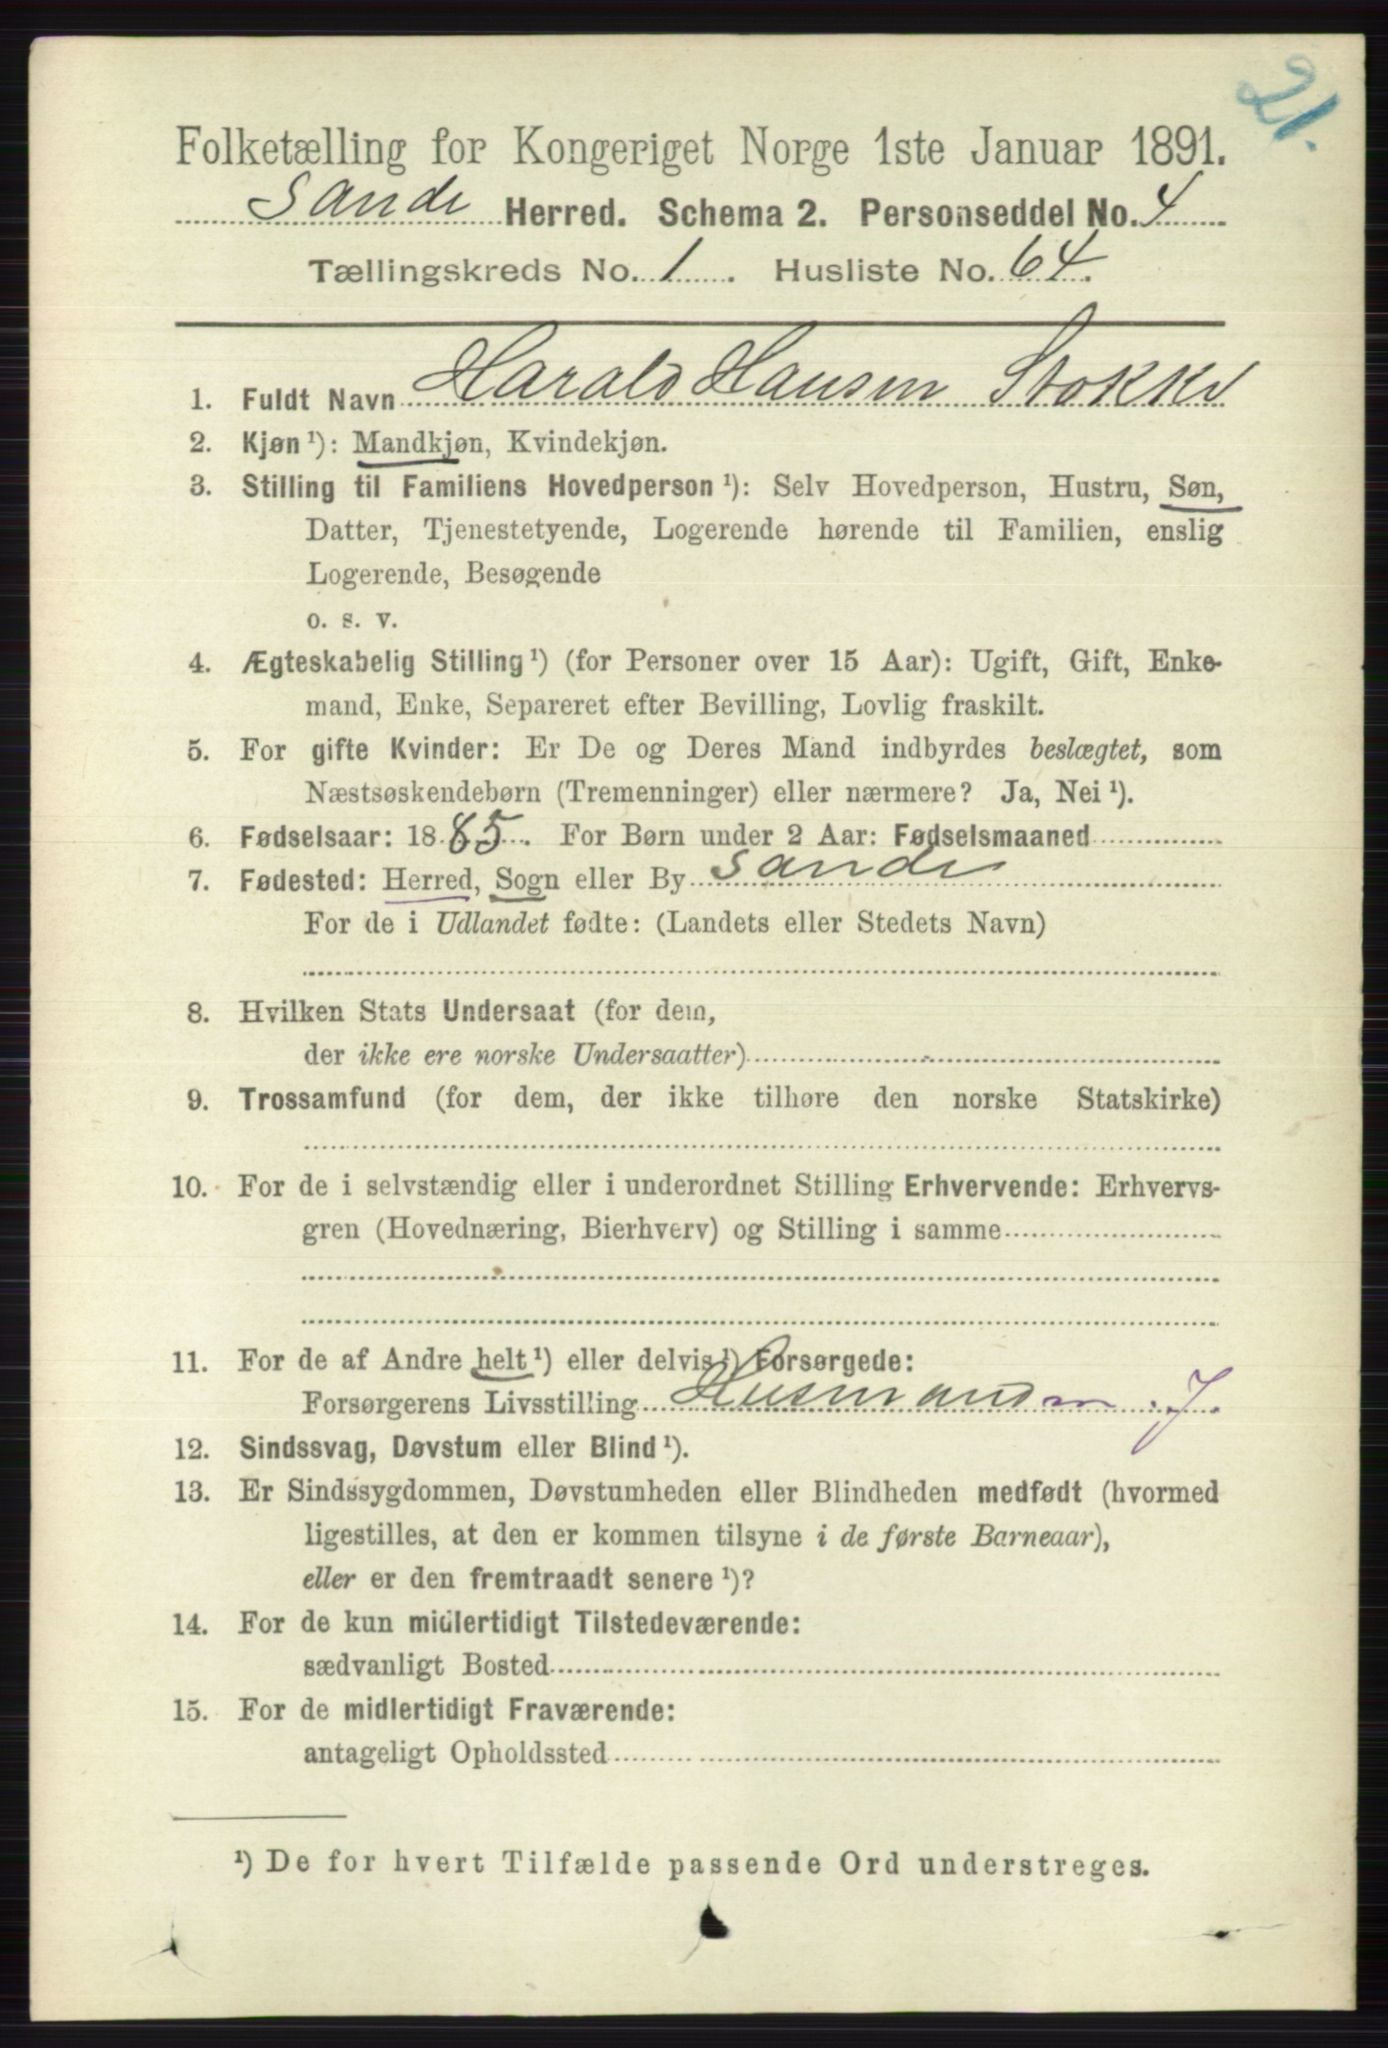 21.
Folketælling for Kongeriget Norge 1ste Januar 1891.
Sande Herred. Schema 2. Personseddel No. 4
Tællingskreds No. 1. Husliste No. 64.
1. Fuldt Navn Harald Hansen Stokke
2. Kjøn ¹): Mandkjøn, Kvindekjøn.
3. Stilling til Familiens Hovedperson ¹): Selv Hovedperson, Hustru, Søn,
Datter, Tjenestetyende, Logerende hørende til Familien, enslig
Logerende, Besøgende
o. s. v.
4. Ægteskabelig Stilling ¹) (for Personer over 15 Aar): Ugift, Gift, Enke-
mand, Enke, Separeret efter Bevilling, Lovlig fraskilt.
5. For gifte Kvinder: Er De og Deres Mand indbyrdes beslægtet, som
Næstsøskendebørn (Tremenninger) eller nærmere? Ja, Nei ¹).
6. Fødselsaar: 1885. For Børn under 2 Aar: Fødselsmaaned
7. Fødested: Herred, Sogn eller By Sande
For de i Udlandet fødte: (Landets eller Stedets Navn)
8. Hvilken Stats Undersaat (for dem,
der ikke ere norske Undersaatter)
9. Trossamfund (for dem, der ikke tilhøre den norske Statskirke)
10. For de i selvstændig eller i underordnet Stilling Erhvervende: Erhvervs-
gren (Hovednæring, Bierhverv) og Stilling i samme
11. For de af Andre helt ¹) eller delvis ¹) Forsørgede:
Forsørgerens Livsstilling Husmand m. J.
12. Sindssvag, Døvstum eller Blind ¹).
13. Er Sindssygdommen, Døvstumheden eller Blindheden medfødt (hvormed
ligestilles, at den er kommen tilsyne i de første Barneaar),
eller er den fremtraadt senere ¹)?
14. For de kun midlertidigt Tilstedeværende:
sædvanligt Bosted
15. For de midlertidigt Fraværende:
antageligt Opholdssted
¹) De for hvert Tilfælde passende Ord understreges.